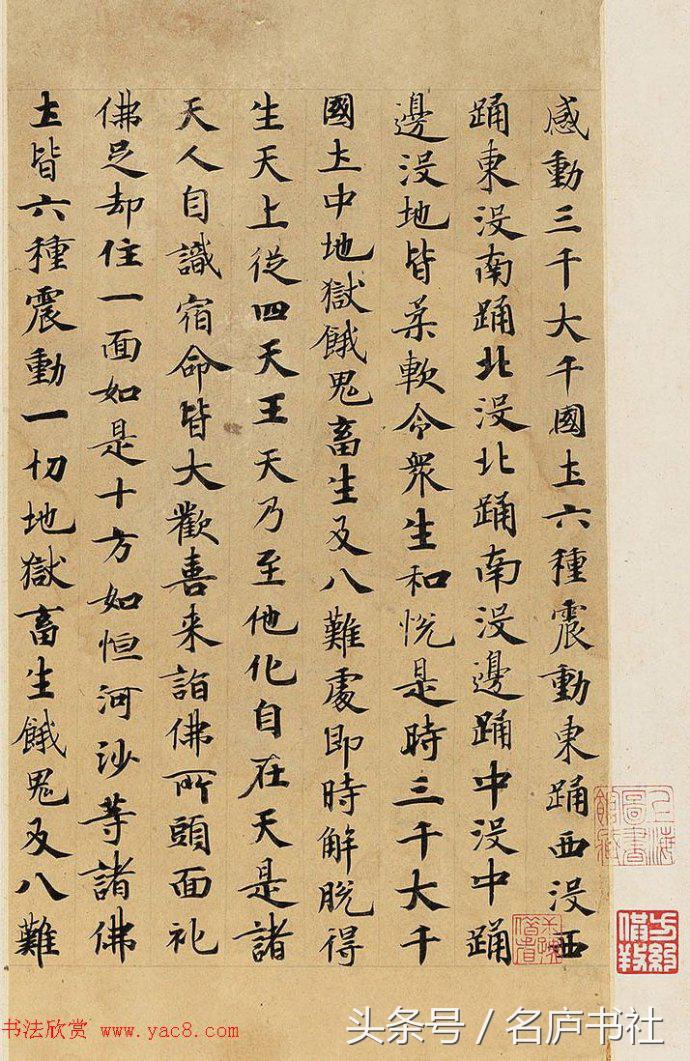 感動三千大千國土六種震動東踊西没西
踊東没南踊北没北踊南没邊踊中没中踊
邊没地皆柔軟令衆生和悅是時三千大千
國土中地獄餓鬼畜生及八難處即時解脱得
生天上從四天王天乃至他化自在天是諸
天人自識宿命皆大歡喜来詣佛所頭面礼
佛足却住一面如是十方如恒河沙等諸佛
土皆六種震動一切地獄畜生餓鬼及八難
上海圖書館藏
书法欣赏 www.yac8.com
头条号 / 名庐书社